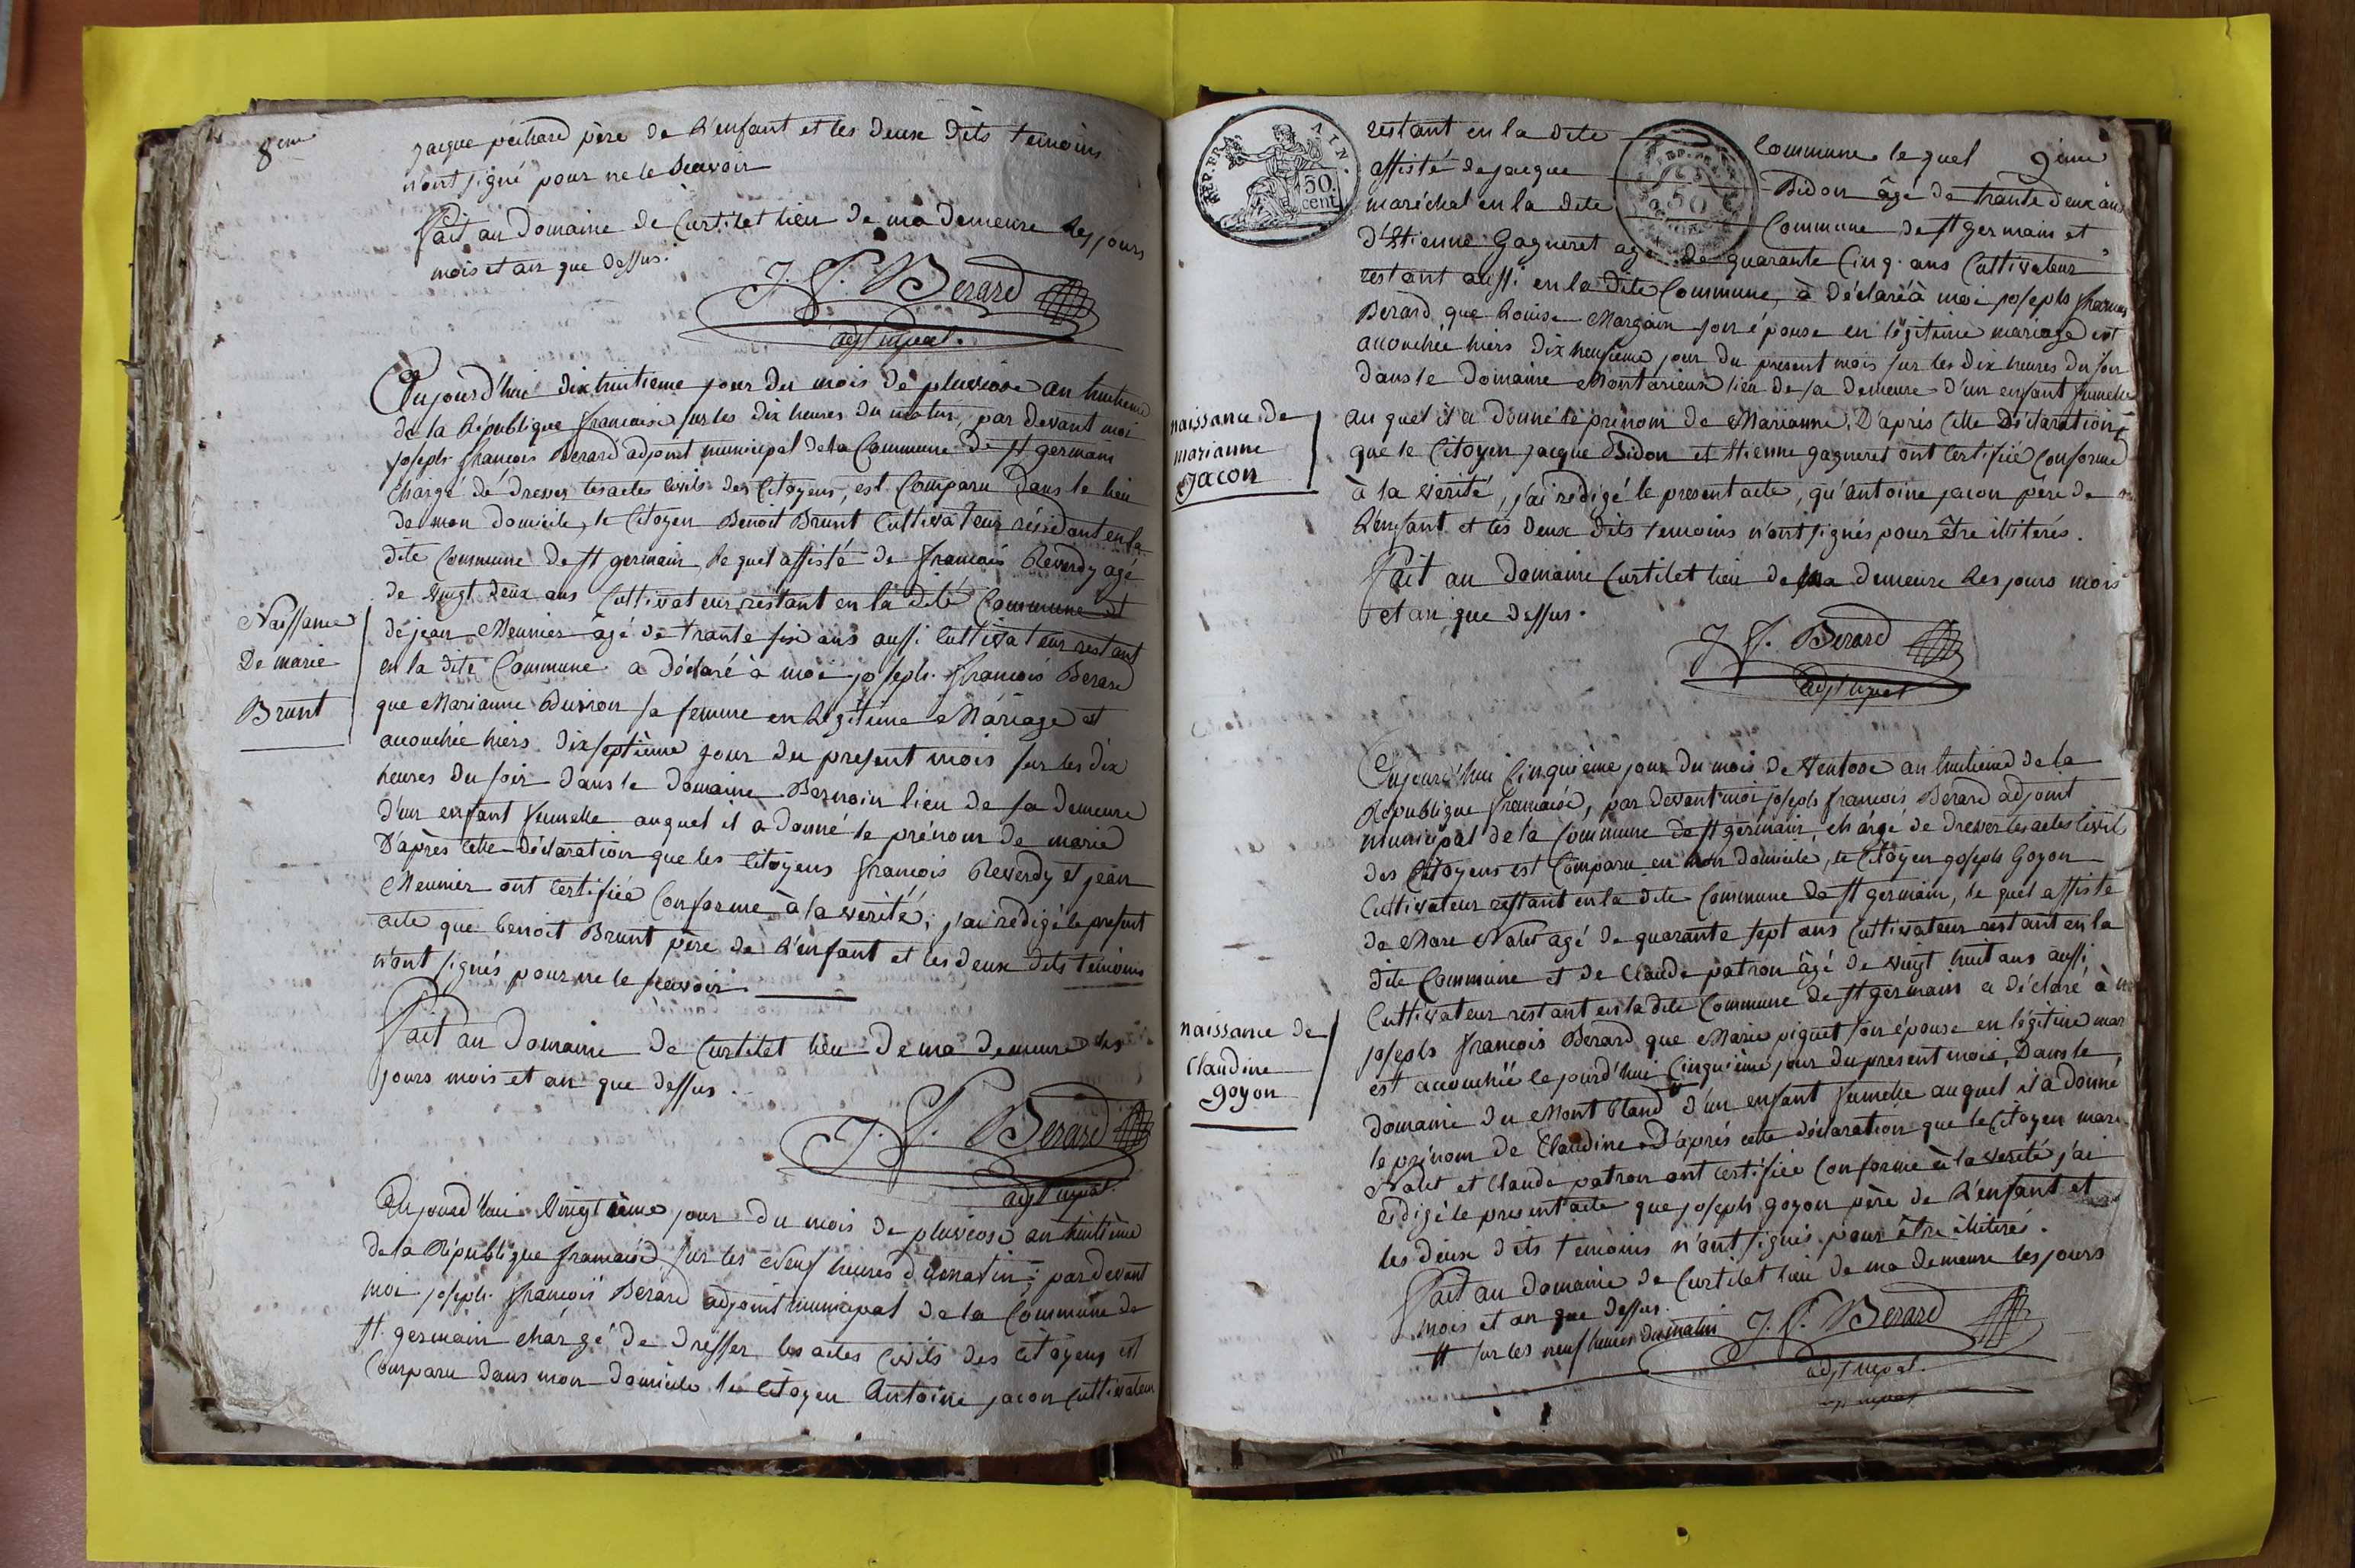 8eme
jacque pechard père de L'enfant et les deux dits temoins
n'ont signé pour ne le Scavoir
fait au Domaine de Curtilet lieu de ma demeure les jours
mois et an que dessus.
J. f. Berard
adjt mpal.
Aujourd'hui dix huitieme jour du mois de pluviose an huitieme
de la République francaise sur les dix heures du matin, par devant moi
joseph francois Berard adjoint municipal de la Commune de st germain
chargé de dresser les actes civils des Citoyens, est Comparu Dans le lieu
de mon domicile, le Citoyen Benoit Brunt Cultivateur résidant en la
dite Commune de st germain le quel assisté de francois Reverdy agé
de vingt deux ans Cultivateur restant en la dite Commune et
de jean Meunier âgé de trante six ans aussi Cultivateur restant
en la dite Commune a déclaré à moi joseph francois Berard
que Marianne Buisson sa femme en Légitime Mariage est
acouchée hiers dixseptième jour du present mois sur les dix
heures du soir dans le domaine Bernoin lieu de sa demeure
d'un enfant fumelle auquel il a donné le prénom de marie
D'après cette déclaration que les citoyens francois Reverdy et jean
Meunier ont certifiée Conforme à la verité, j'ai rédigé le present
acte que benoit Brunt père de L'enfant et les deux dits temoins
n'ont signés pour ne le scavoir.
fait au Domaine de Curtilet lieu de ma demeure les
jours mois et an que dessus.
J. f. Berard
adjt mpal.
Naissance
De marie
Brunt
Aujourd'hui vingtième jour du mois de pluviose an huitième
de la République francaise sur les Neuf heures du matin; par devant
moi joseph francois Berard adjoint municipal de la Commune de
st germain chargé de dresser les actes civils des citoyens est
Comparu dans mon domicile le citoyen Antoine jacon Cultivateur
REP. FRA. AIN.
50.
cent.
9eme
restant en la dite Commune le quel
assisté de jacque Bidon âgé de trante deux ans
maréchal en la dite Commune de st germain et
d'Etienne Gagneret agé de quarante Cinq ans Cultivateur
restant aussi en la dite Commune, à déclaré à moi joseph francois
Berard que Louise Margain son épouse en légitime mariage est
acouchée hiers dix neufieme jour du present mois sur les dix heures du soir
dans le domaine Montarieux lieu de sa demeure d'un enfant fumelle
au quel il a donné le prénom de Marianne, D'après cette Déclaration
que le Citoyen jacque Bidon et Etienne gagneret ont certifiée Conforme
à la verité, j'ai redigé le present acte, qu'antoine jacon père de
L'enfant et les deux dits temoins n'ont signés pour être illiterés.
fait au domaine Curtilet lieu de ma demeure les jours mois
et an que dessus.
J f. Berard
adjt mpal
naissance de
marianne
Jacon
Aujourd'hui Cinquième jour du mois de Ventose an huitieme de la
République francaise, par devant moi joseph francois Berard adjoint
municipal de la Commune de st germain, chargé de dresser les actes civils
des Citoyens est Comparu en mon domicile, le Citoyen joseph Goyon
Cultivateur restant en la dite Commune de st germain, le quel assisté
de Marc Nalet agé de quarante sept ans Cultivateur restant en la
dite Commune et de Claude patron âgé de vingt huit ans aussi
Cultivateur restant en la dite Commune de st germain a déclaré à
joseph francois Berard que Marie piguet son épouse en légitime mar
est acouchée le jourd'hui Cinquième jour du present mois, Dans le
domaine du Mont bland d'un enfant fumelle auquel il a donné
le prénom de Claudine. D'après cette déclaration que le Citoyen marc
Nalet et Claude patron ont certifiée Conforme à la verité j'ai
redigé le present acte que joseph goyon père de L'enfant et
les deux dits temoins n'ont signés pour être illiterés.
fait au Domaine de Curtilet lieu de ma demeure les jours
mois et an que dessus.
# sur les neuf heures du matin
J. f. Berard
adjt mpal.
naissance de
Claudine
goyon